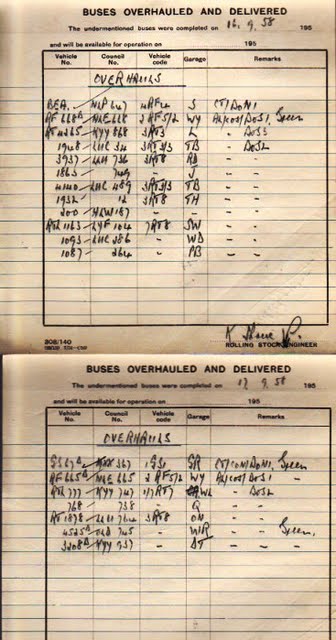 BUSES OVERHAULED AND DELIVERED
The undermentioned buses were completed on 16. 9. 58 195
and will be available for operation on 195
Vehicle No. Council No. Vehicle code Garage Remarks
OVERHAULS
BEA. NLP 647 4RF4 S CT/DON1
RF 668A NLE 668 2RF5/2 WY Green
RT 4265 KYY 868 3RT3 L - DOS3
1948 LUC 34 3RT3/3 TB - DOS2
3937 LUH 736 3RT8 RD - -
1863 749 - J - -
4140 LUC 489 3RT3/3 TB - -
1932 12 3RT8 TH - -
200 HLW 187 - - - -
RTL 1163 LYF 104 7RT8 SW - -
1093 LUC 286 - WD - -
1087 264 - PB - -
308/140 ROLLING STOCK ENGINEER
BUSES OVERHAULED AND DELIVERED
The undermentioned buses were completed on 17. 9. 58 195
and will be available for operation on 195
Vehicle No. Council No. Vehicle code Garage Remarks
OVERHAULS
GS 67 MXX 367 1GS1 SR CT/CON/DON1, Green
RF 665A NLE 665 2RF5/2 WY -
RTL 777 KYY 747 1/7RT7 WL - DOS2
768 738 - Q - -
RT 1878 3RT8 ON - -
4525 OLD 745 - WR - Green
3208 KYY 937 - DT - -